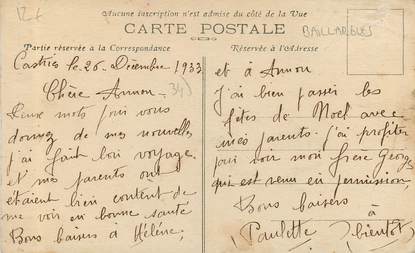 12€
Aucune inscription n'est admise du côté de la Vue
CARTE POSTALE
BAILLARGUES
Partie réservée a la Correspondance
Réservée à l'Adresse
Castries le 26 Décembre 1933
34)
Chère Annon
Deux mots pour vous
donner de mes nouvelles
j'ai fait bon voyage
et mes parents ont
étaient bien content de
me voir en bonne santé
Bons baisers à Hélène;
et à Annon
J'ai bien passer les
fêtes de Noël avec
mes parents. j'ai profiter
pour voir mon frère Georges
qui est venu en permission
Bons baisers
à
Paulette bientot